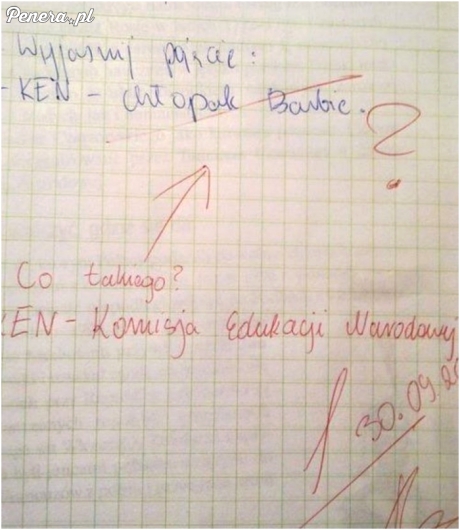 Penera.pl
Wyjaśnij pojęcie:
- KEN - chłopak Barbie.
?
Co takiego?
KEN - Komisja Edukacji Narodowej
30.09.20